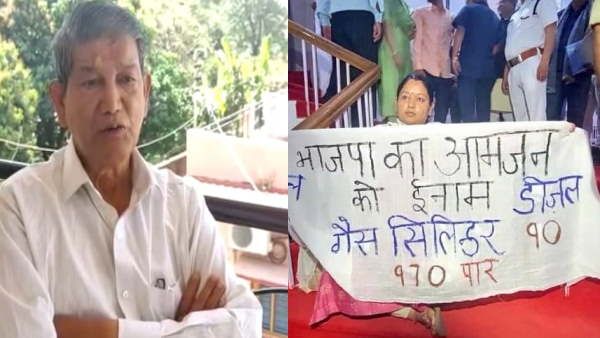 भाजपा का आमजन
को ईनाम डीज़ल
गैस सिलिंडर १०
११० पार